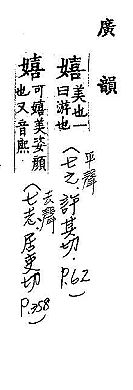 廣韻
嬉
美也一
曰游也
平聲
(七之.許其切.
P.62)
嬉
可嬉美姿顏
也又音熙
去聲
(七志.居吏切
P.358)